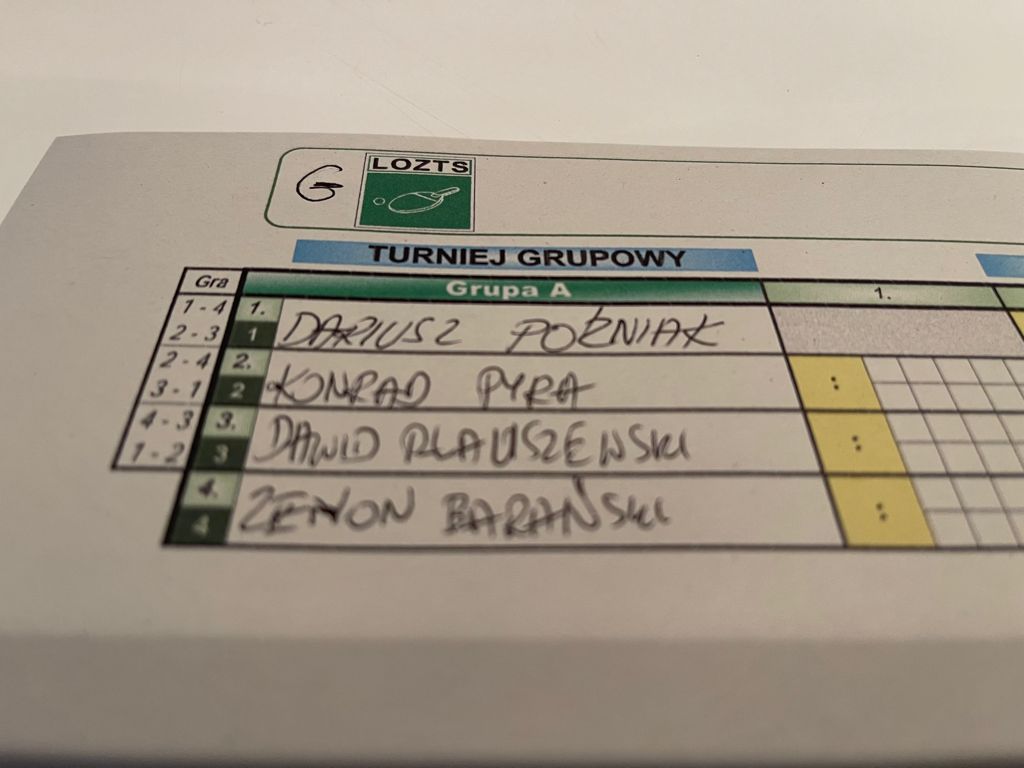 G LOZTS
TURNIEJ GRUPOWY
Gra Grupa A 1.
1 - 4 1.
2 - 3 1 DARIUSZ POŹNIAK
2 - 4 2.
3 - 1 2 KONRAD PYRA
4 - 3 3.
1 - 2 3 DAWID
4.
4 ZENON BARAŃSKI
:
:
: